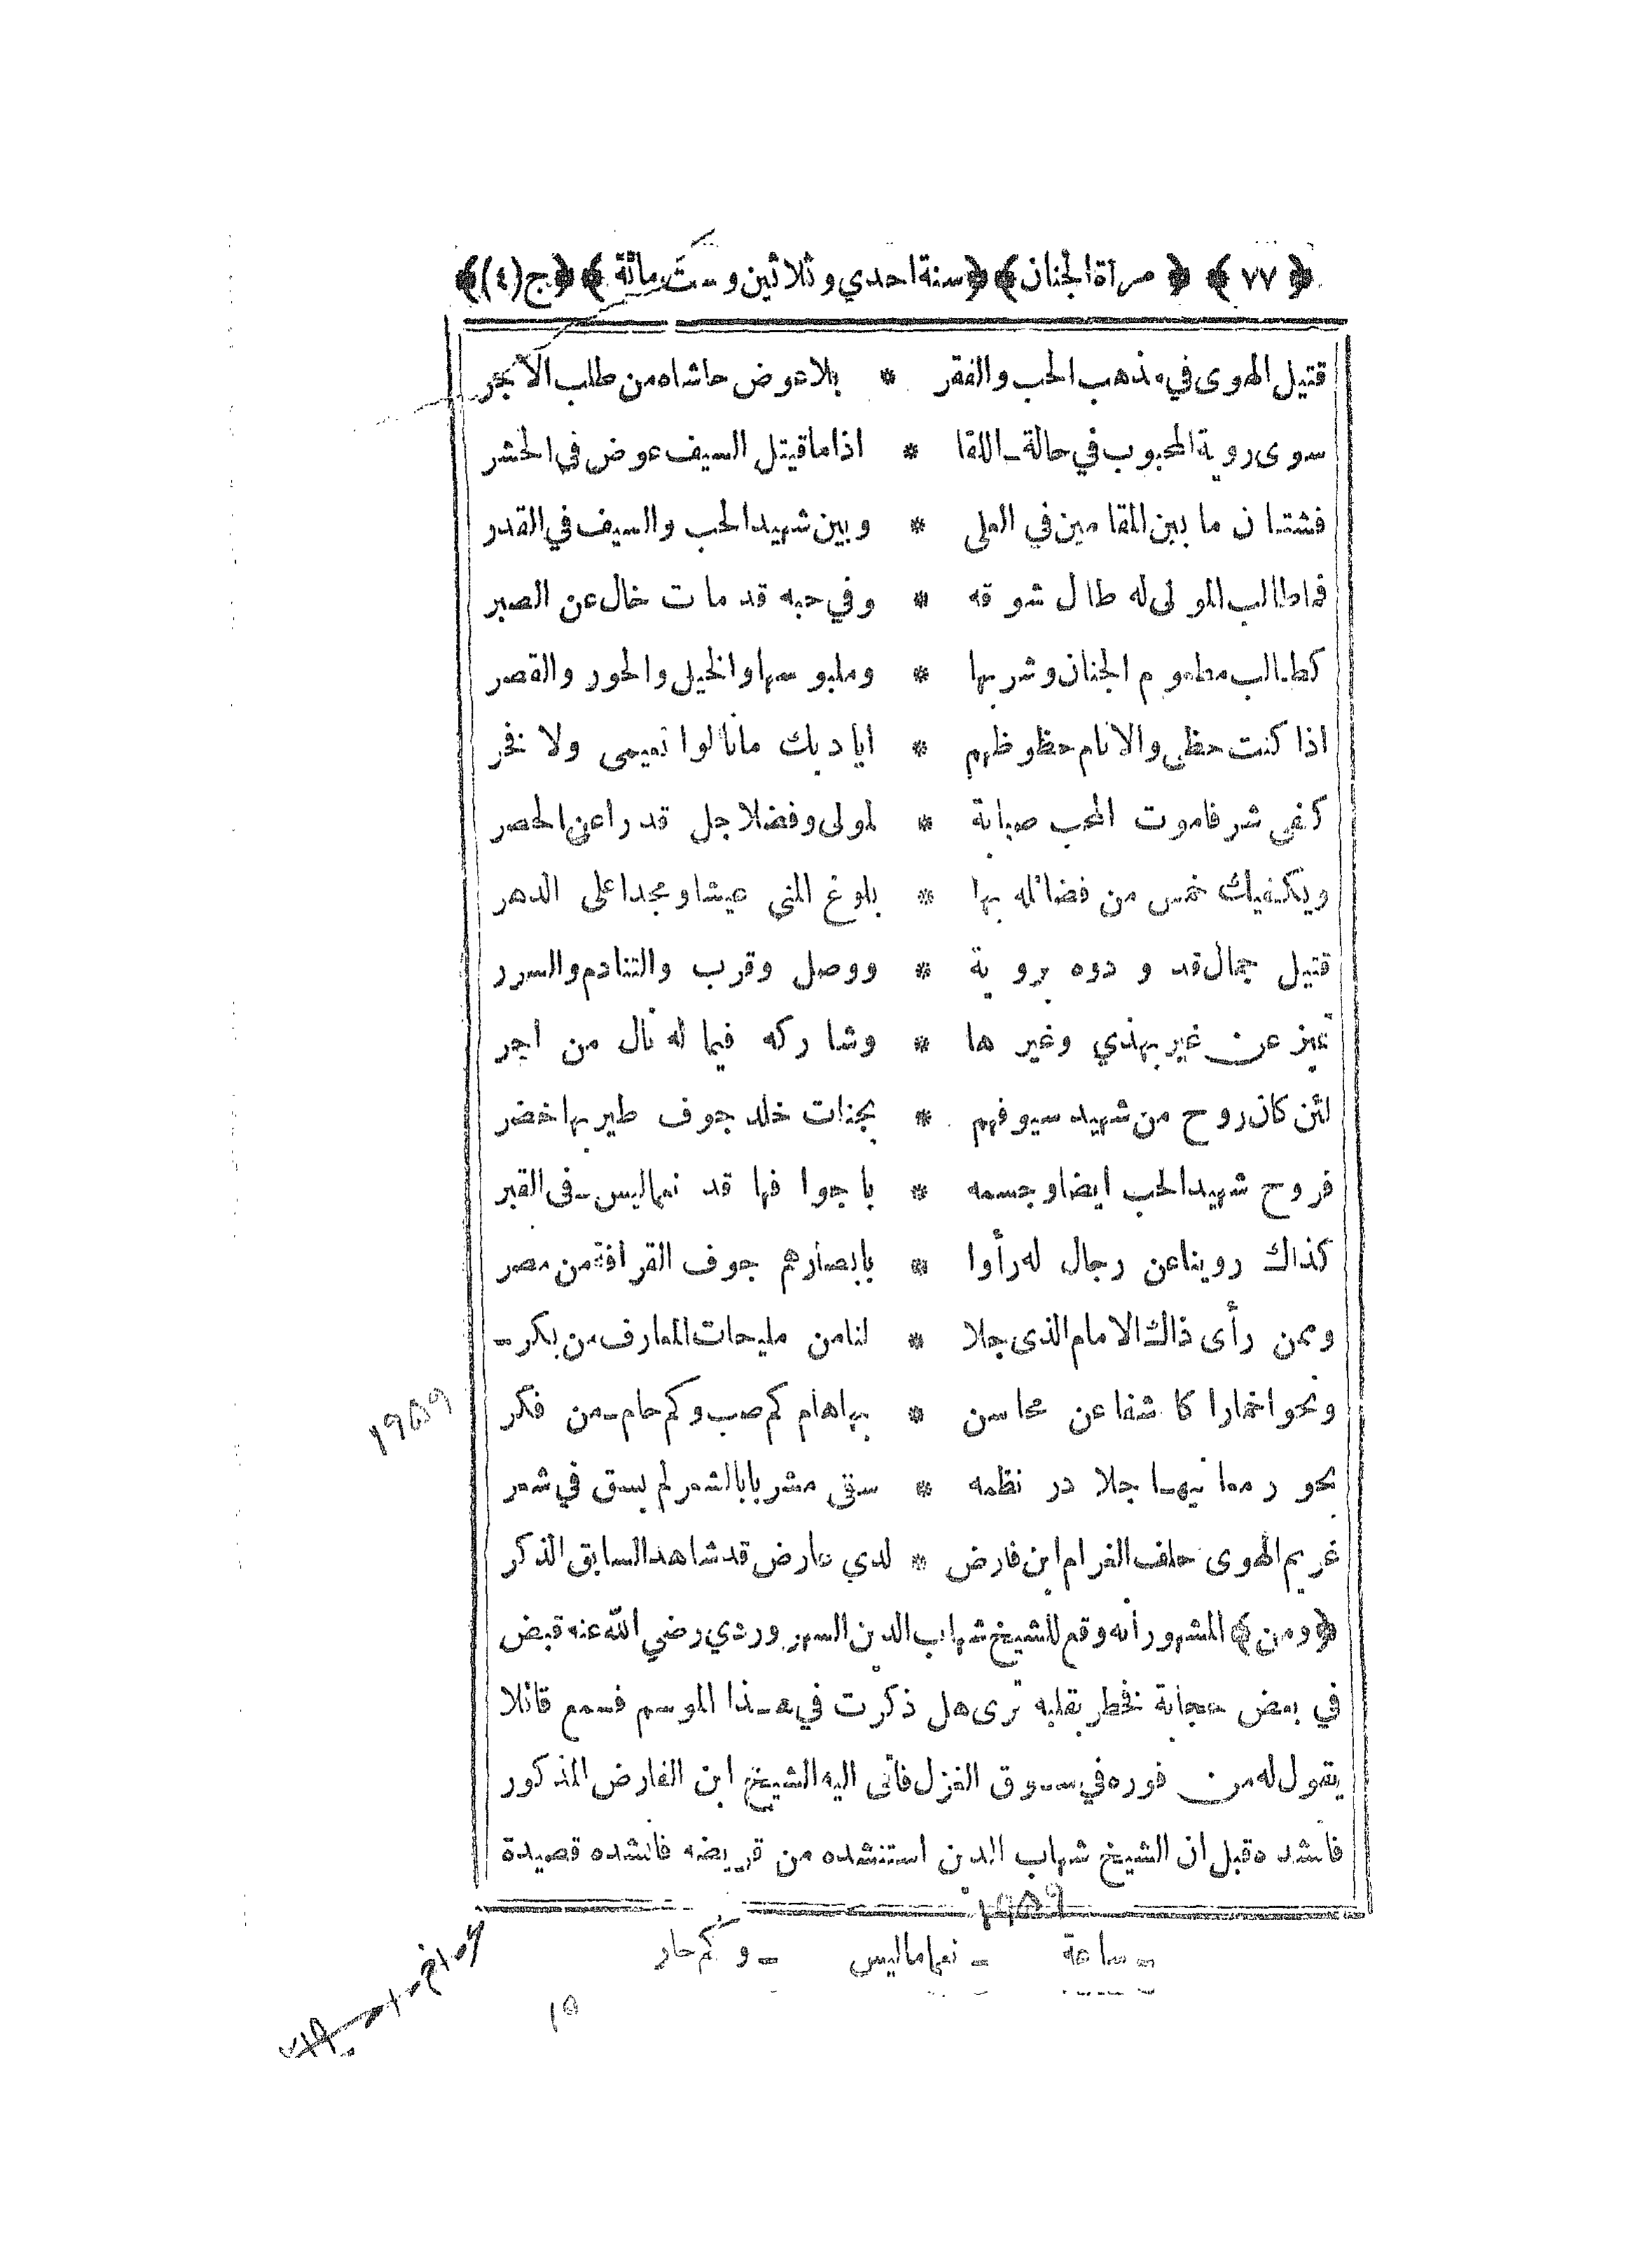 ﴿ ٧٧ ﴾ ﴿ مرآة الجنان ﴾ ﴿ سنة احدي وثلاثين وستمائة ﴾ ﴿ ج (٤) ﴾
قتيل الهوى في مذهب الحب والفقر * بلا عوض حاشاه من طلب الاجر
سوى روية المحبوب في حالة ـ اللقا * اذا ما قيتل السيف عوض في الحشر
فشتان ما بين المقامين في العلى * وبين شهيد الحب والسيف في القدر
فما طالب المولى له طال شوقه * وفي حبه قد مات خال عن الصبر
كطالب مطعوم الجنان وشربها * وملبوسها والخيل والحور والقصر
اذا كنت حظى والانام حظوظهم * اياد بك ما نالوا نعيمى ولا فخر
كفى شرفا موت المحب صبابة * لمولى وفضلا جل قدرا عن الحصر
ويكفيك خمس من فضائله بها * بلوغ المنى عيشا ومجدا على الدهر
قتيل جمال قد ودوه بروية * ووصل وقرب والتنادم والسرر
تميز عن غير بهذي وغيرها * وشاركه فيما له نال من اجر
لئن كان روح من شهيد سيوفهم * بجنات خلد جوف طير بها خضر
فروح شهيد الحب ايضا وجسمه * با جوافها قد نعما ليس ـ في القبر
كذاك روينا عن رجال له رأوا * بابصارهم جوف القرافة من مصر
وممن رأى ذاك الامام الذى جلا * لنا من مليحات المعارف من بكر ـ
ونحو اخمارا كاشفا عن محاسن * بها هام كم صب وكم حام ـ من فكر
بحور معانيها جلا در نظمه * سقى مشربا بالشعر لم يسق في شعر
غريم الهوى حلف الغرام ابن فارض * لدي عارض قد شاهد السابق الذكر
﴿ ومن ﴾ المشهور أنه وقع للشيخ شهاب الدين السهروردي رضي الله عنه قبض
في بعض حجاته فخطر بقلبه ترى هل ذكرت في هـذا الموسم فسمع قائلا
يقول له من فوره في سوق الغزل فاتى اليه الشيخ ابن الفارض المذكور
فانشده قبل ان الشيخ شهاب الدين استنشده من قريضه فانشده قصيدة
١٩٥٩
١٩٥٩
ـ ساعة ـ نعما ماليس ـ وكم حار
١٥